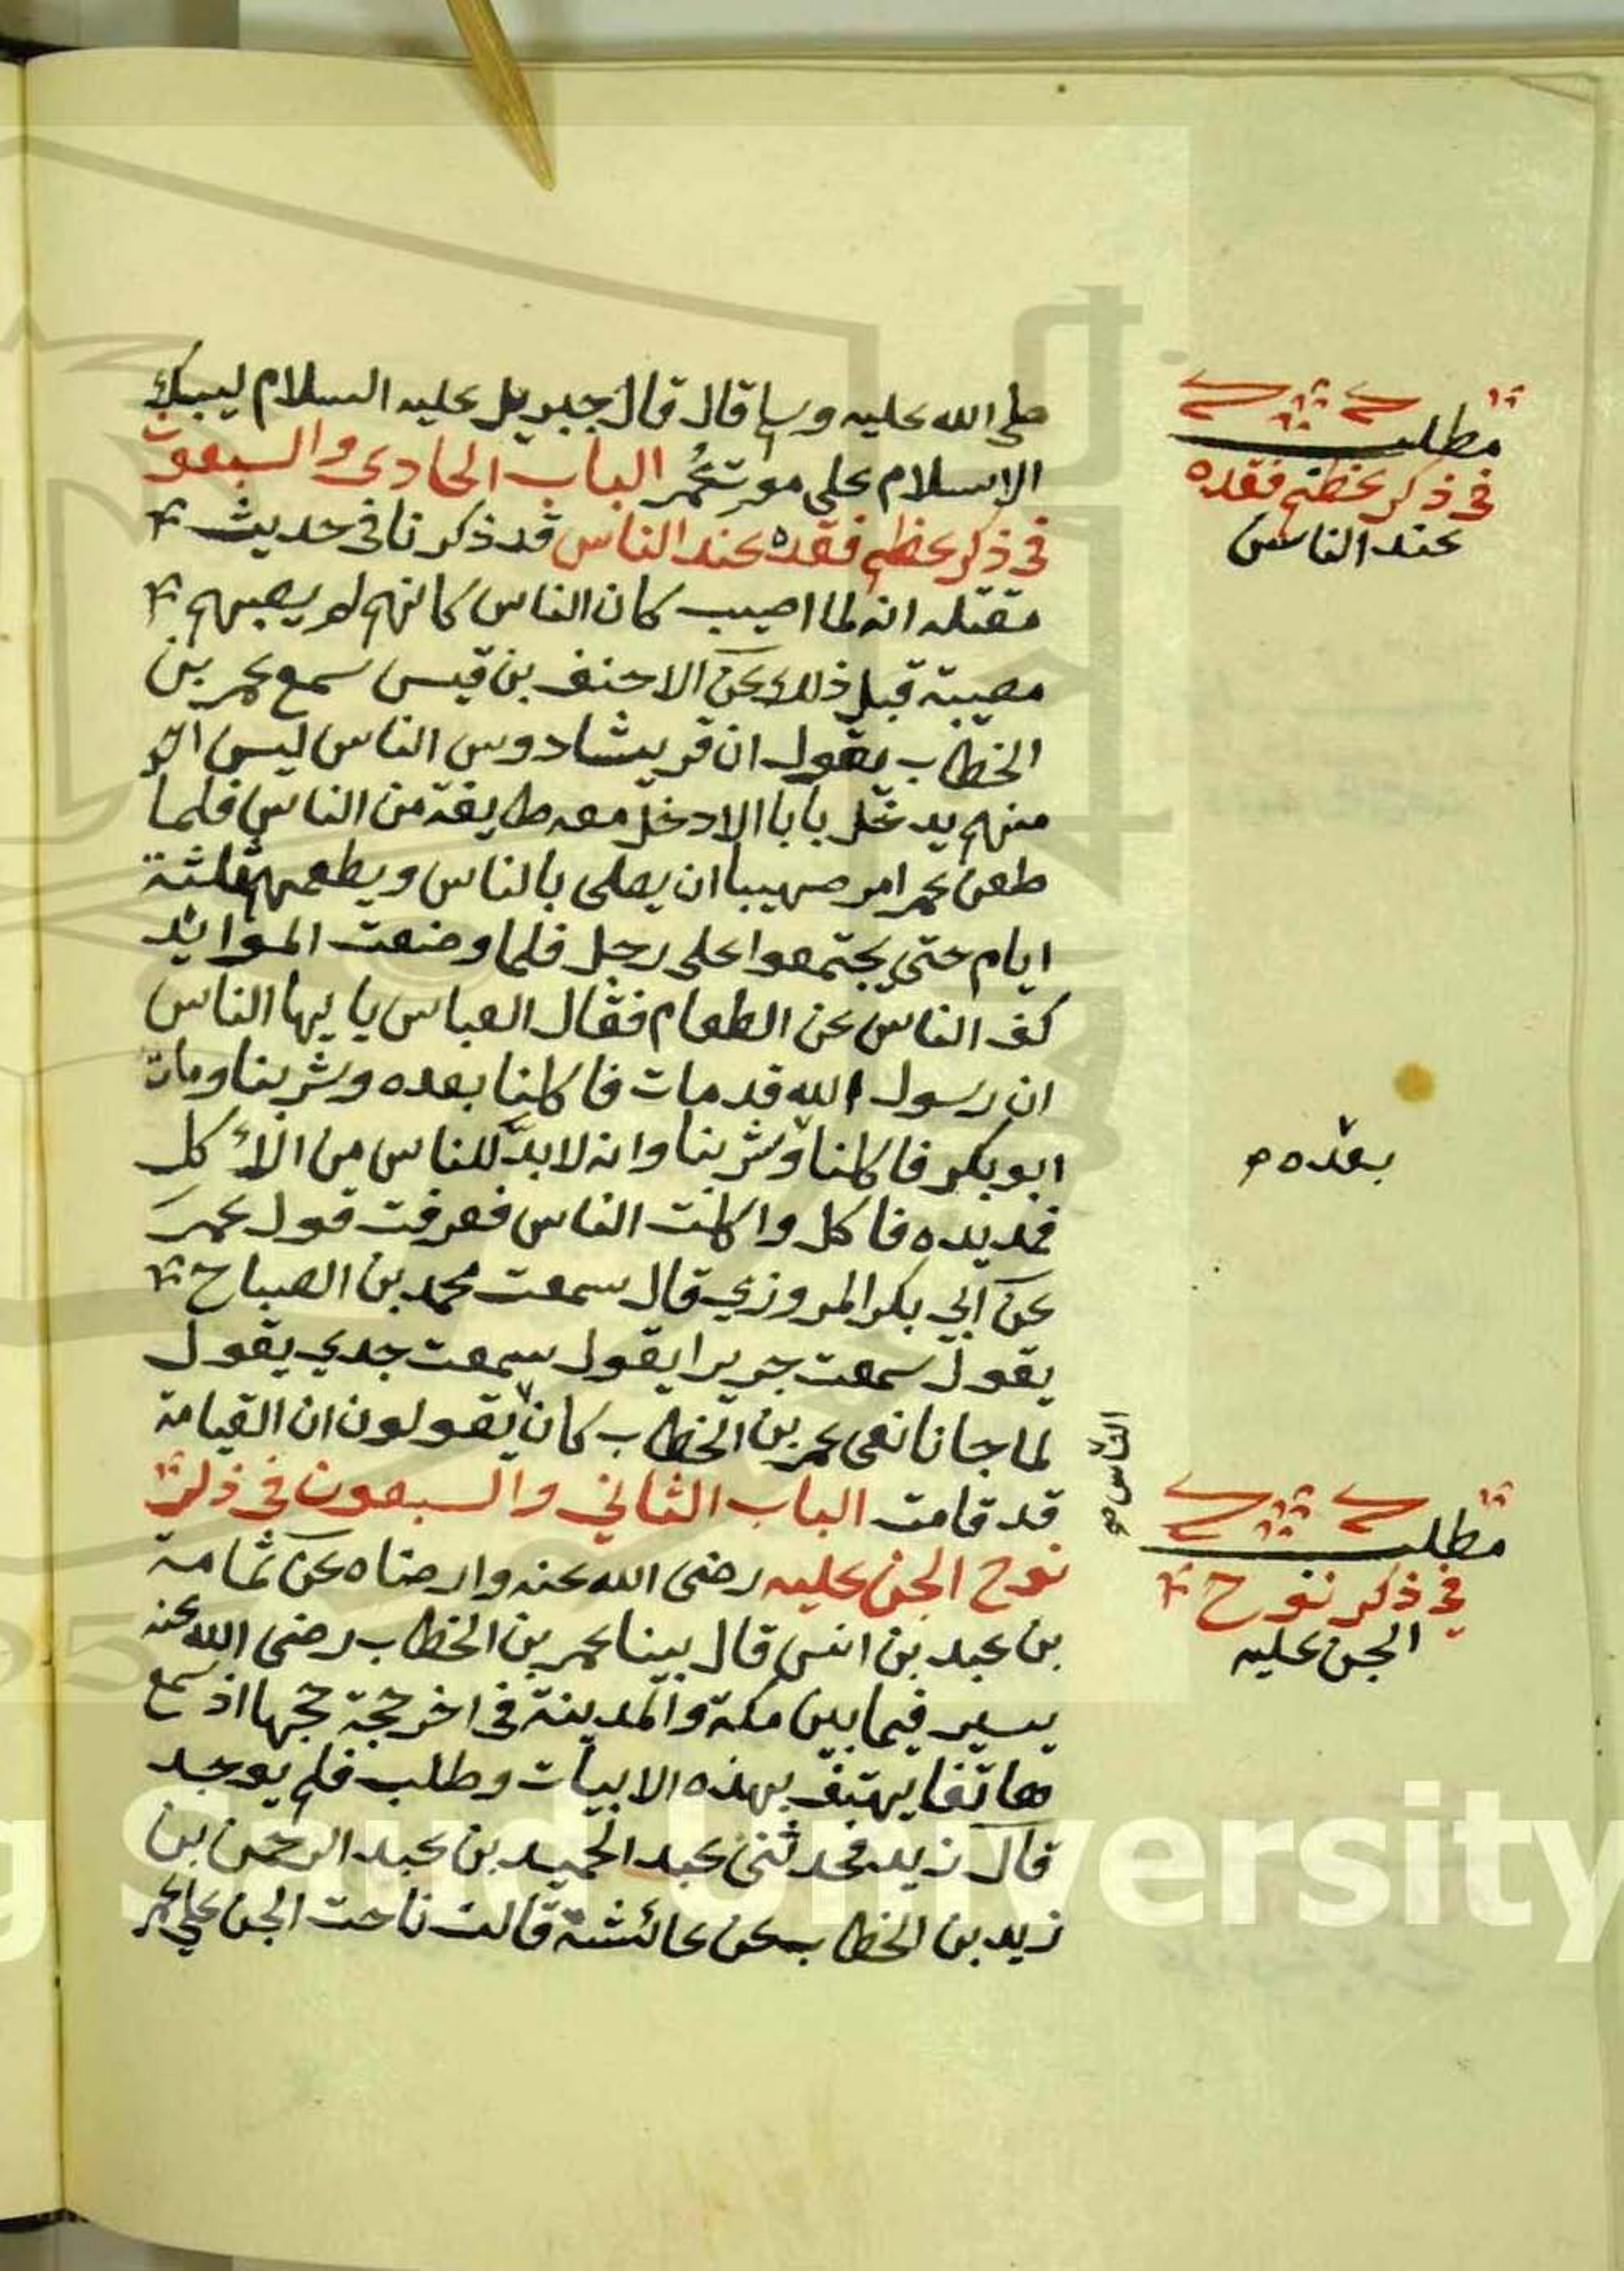 صلى الله عليه وسلم قال قال جبريل عليه السلام ليبك
الاسلام على موت عمر الباب الحادى والسبعون
فى ذكر عظم فقده عند الناس قد ذكرنا فى حديث
مقتله انه لما اصيب كان الناس كانهم لم يصبهم
مصيبة قبل ذلك عن الاحنف بن قيس سمع عمر بن
الخطاب يقول ان قريشا روس الناس ليس احد
منهم يدخل بابا الا دخل معه طايفة من الناس فلما
طعن عمر امر صهيبا ان يصلى بالناس ويطعمهم ثلثة
ايام حتى يجتمعوا على رجل فلما وضعت الموائد
كف الناس عن الطعام فقال العباس يا يها الناس
ان رسول الله قد مات فاكلنا بعده وشربنا ومات
ابو بكر فاكلنا وشربنا وانه لابد للناس من الأكل
فمد يده فاكل واكلت الناس فعرفت قول عمر
عن ابي بكر المروزي قال سمعت محمد بن الصباح
يقول سمعت جريرا يقول سمعت جدي يقول
لما جانا نعى عمر بن الخطاب كان يقولون ان القيامة
قد قامت الباب الثاني والسبعون فى ذكر
نوح الجن عليه رضى الله عنه وارضاه عن ثمامة
بن عبد بن انس قال بينا عمر بن الخطاب رضى الله عنه
يسير فيما بين مكة والمدينة فى اخر حجة حجها اذ سمع
هاتفا يهتف بهذه الابيات وطلب فلم يوجد
قال زيد فحدثنى عبد الحميد بن عبد الرحمن بن
زيد بن الخطاب عن عائشة قالت ناحت الجن على عمر
مطلب
فى ذكر عظم فقده
عند الناس
بعده صح
الناس صح
مطلب
فى ذكر نوح
الجن عليه
King Saud University